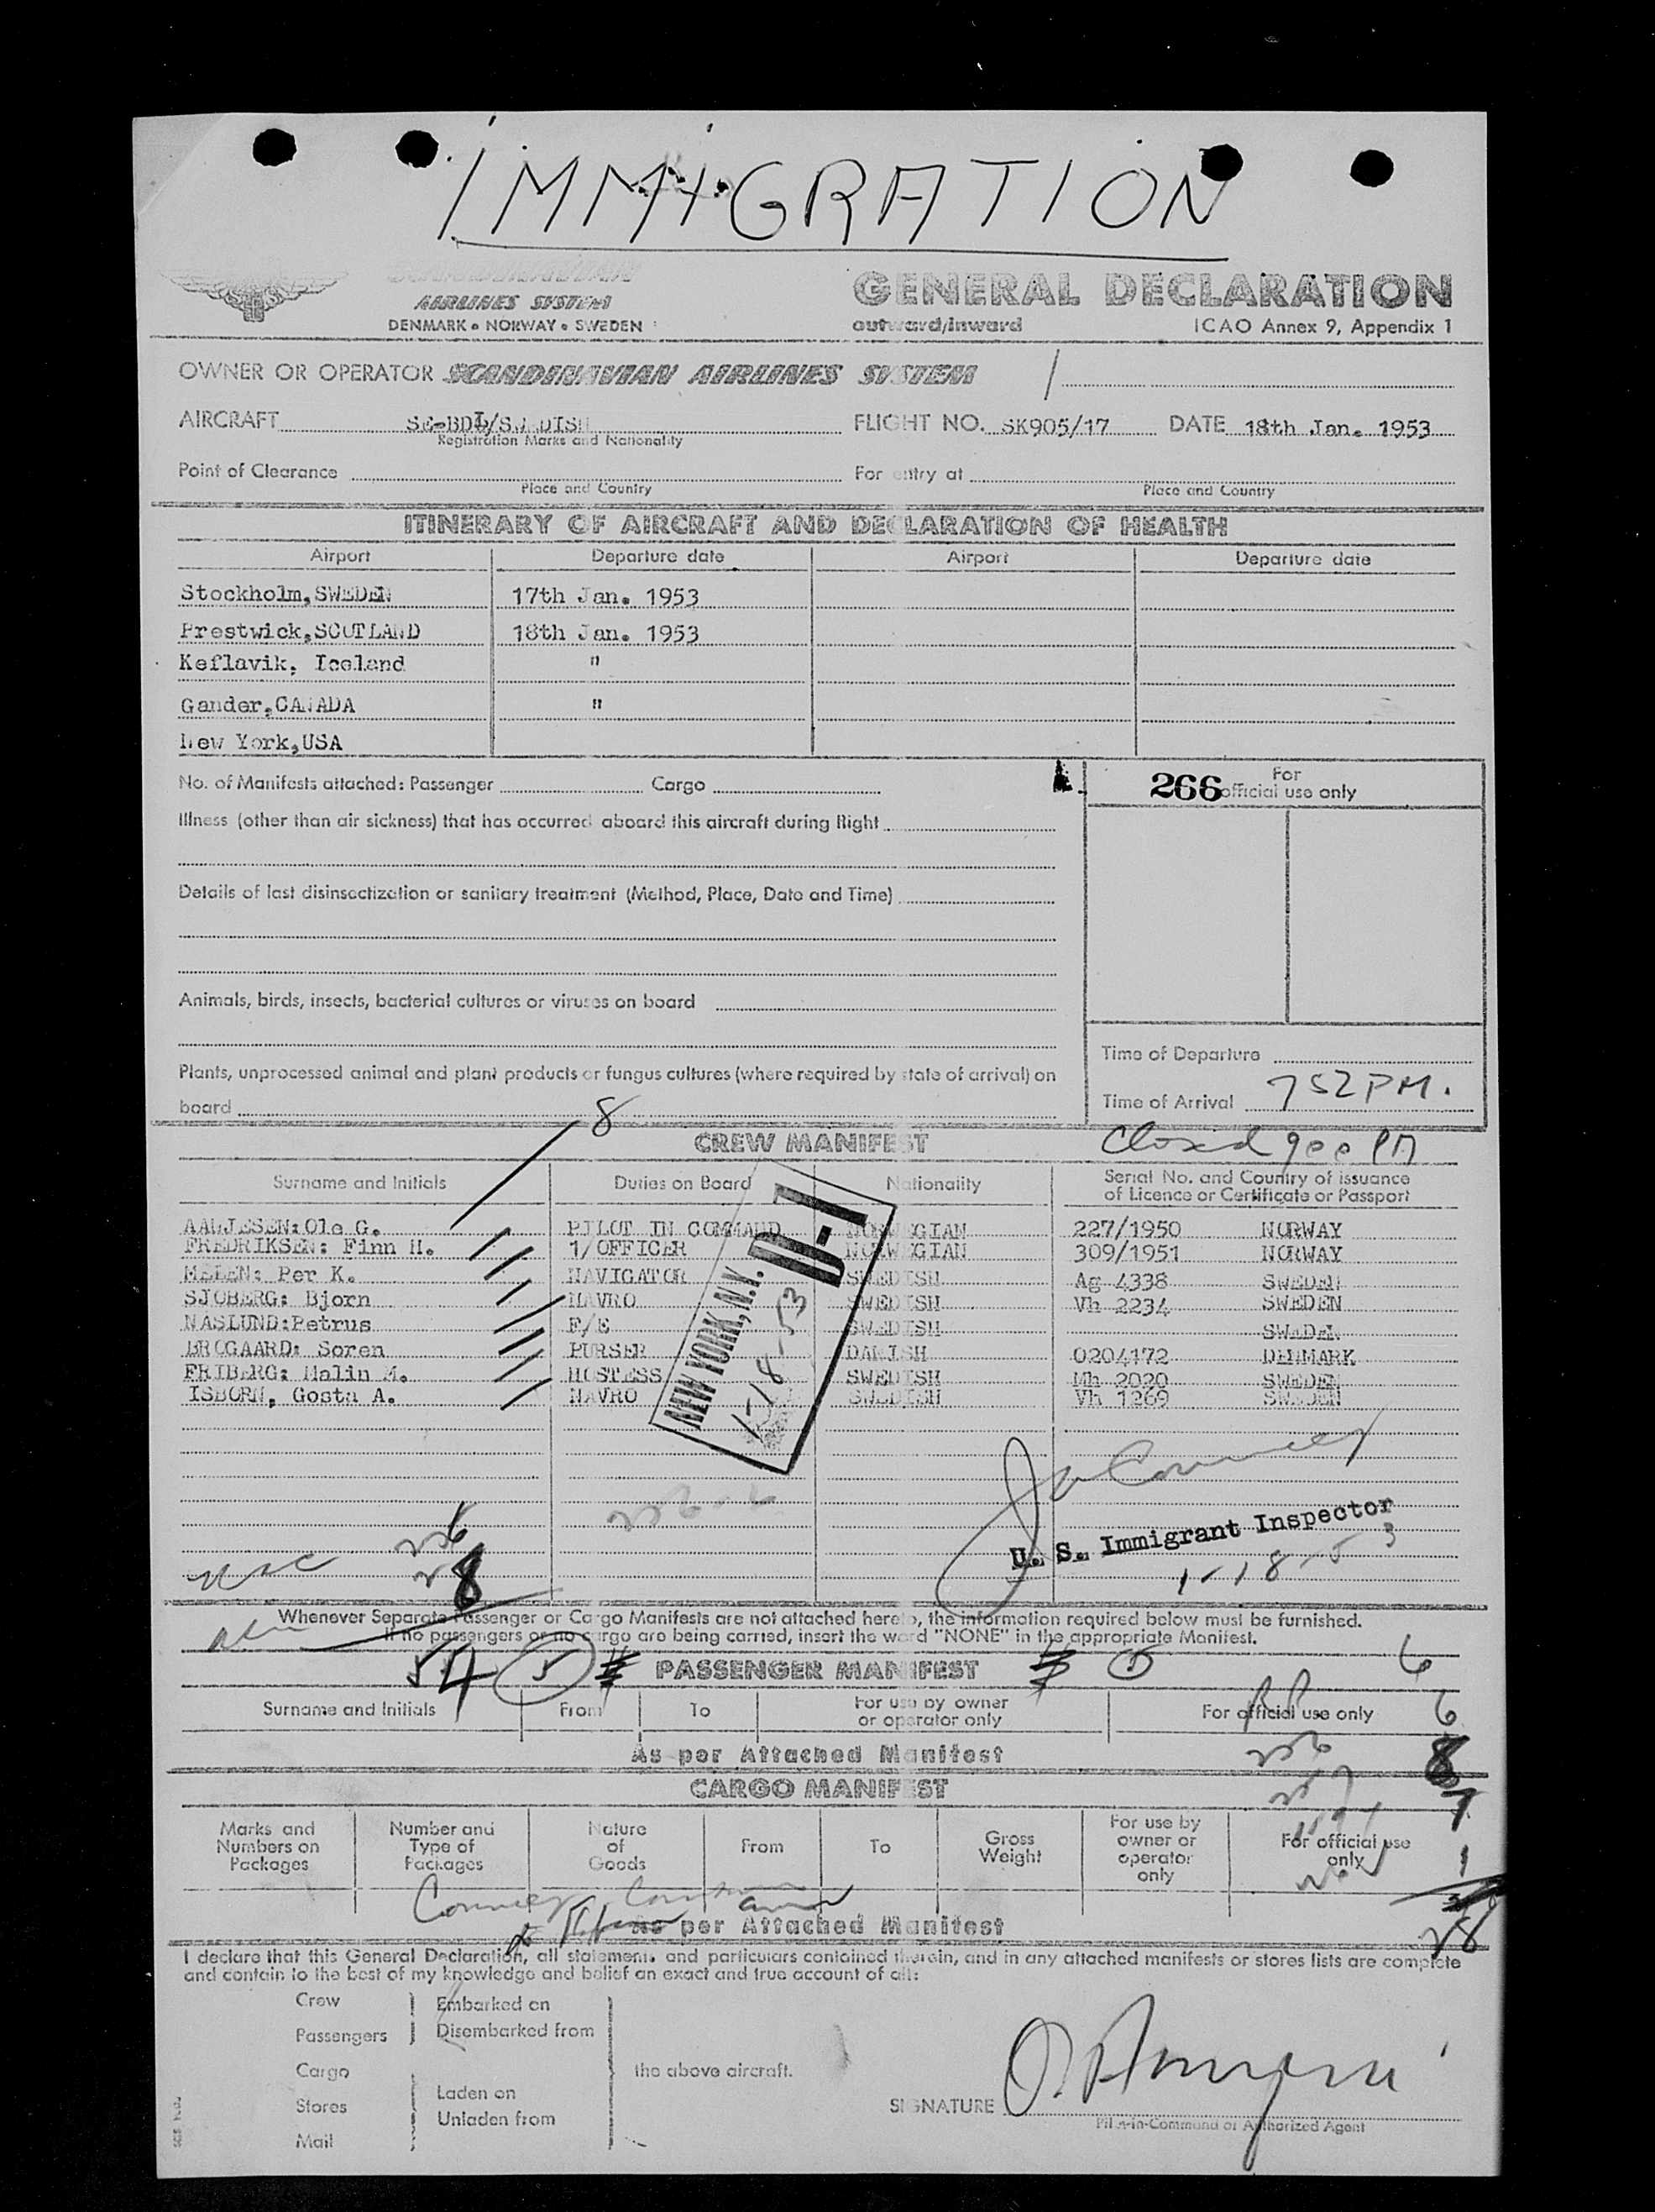 IMMIGRATION
SCANDINAVIAN
AIRLINES SYSTEM
DENMARK • NORWAY • SWEDEN
GENERAL DECLARATION
outward/inward ICAO Annex 9, Appendix 1
OWNER OR OPERATOR SCANDINAVIAN AIRLINES SYSTEM
AIRCRAFT SE-BDL/SWEDISH FLIGHT NO. SK905/17 DATE 18th Jan. 1953
Registration Marks and Nationality
Point of Clearance For entry at
Place and Country Place and Country
ITINERARY OF AIRCRAFT AND DECLARATION OF HEALTH
Airport Departure date Airport Departure date
Stockholm,SWEDEN 17th Jan. 1953
Prestwick,SCOTLAND 18th Jan. 1953
Keflavik, Iceland "
Gander,CANADA "
New York,USA
No. of Manifests attached: Passenger Cargo
266 For official use only
Illness (other than air sickness) that has occurred aboard this aircraft during flight
Details of last disinsectization or sanitary treatment (Method, Place, Date and Time)
Animals, birds, insects, bacterial cultures or viruses on board
Time of Departure
Plants, unprocessed animal and plant products or fungus cultures (where required by state of arrival) on
board
Time of Arrival 752 PM.
8
CREW MANIFEST
Closed 900 PM
Surname and Initials Duties on Board Nationality Serial No. and Country of issuance
of Licence or Certificate or Passport
PILOT IN COMMAND NORWEGIAN 227/1950 NORWAY
FREDRIKSEN: Finn H. 1/OFFICER NORWEGIAN 309/1951 NORWAY
MELEN: Per K. NAVIGATOR SWEDISH Ag 4338 SWEDEN
SJOBERG: Bjorn NAVRO SWEDISH Vh 2234 SWEDEN
NASLUND:Petrus F/E SWEDISH SWEDEN
BROGAARD: Soren PURSER DANISH 0204172 DENMARK
FRIBERG: Malin M. HOSTESS SWEDISH Mh 2020 SWEDEN
ISBORN, Gosta A. NAVRO SWEDISH Vh 1269 SWEDEN
NEW YORK, N.Y.
1-18-53
U. S. Immigrant Inspector
1-18-53
8
Whenever Separate Passenger or Cargo Manifests are not attached hereto, the information required below must be furnished.
If no passengers or no cargo are being carried, insert the word "NONE" in the appropriate Manifest.
54 5 PASSENGER MANIFEST 6
Surname and Initials From To For use by owner
or operator only For official use only 6
As per Attached Manifest
8
CARGO MANIFEST
7
Marks and
Numbers on
Packages Number and
Type of
Packages Nature
of
Goods From To Gross
Weight For use by
owner or
operator
only For official use
only
1
As per Attached Manifest
28
I declare that this General Declaration, all statements and particulars contained therein, and in any attached manifests or stores lists are complete
and contain to the best of my knowledge and belief an exact and true account of all:
Crew Embarked on
Passengers Disembarked from
Cargo the above aircraft.
Stores Laden on
Unladen from
Mail
SIGNATURE
Pilot-in-Command or Authorized Agent